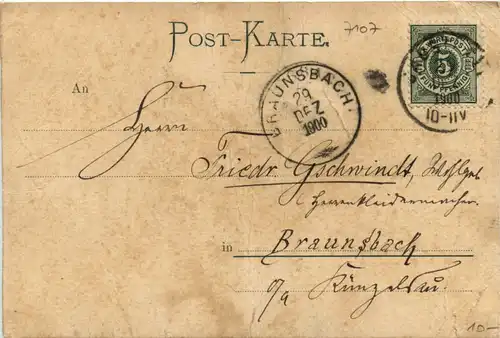 7107
POST-KARTE.
5
1900
10-11V
BRAUNSBACH.
29
DEZ
1900
An
Herrn
Friedr. Gschwindt, Wohlgeb
Herrenkleidermacher
in Braunsbach
o/a Künzelsau.
10-